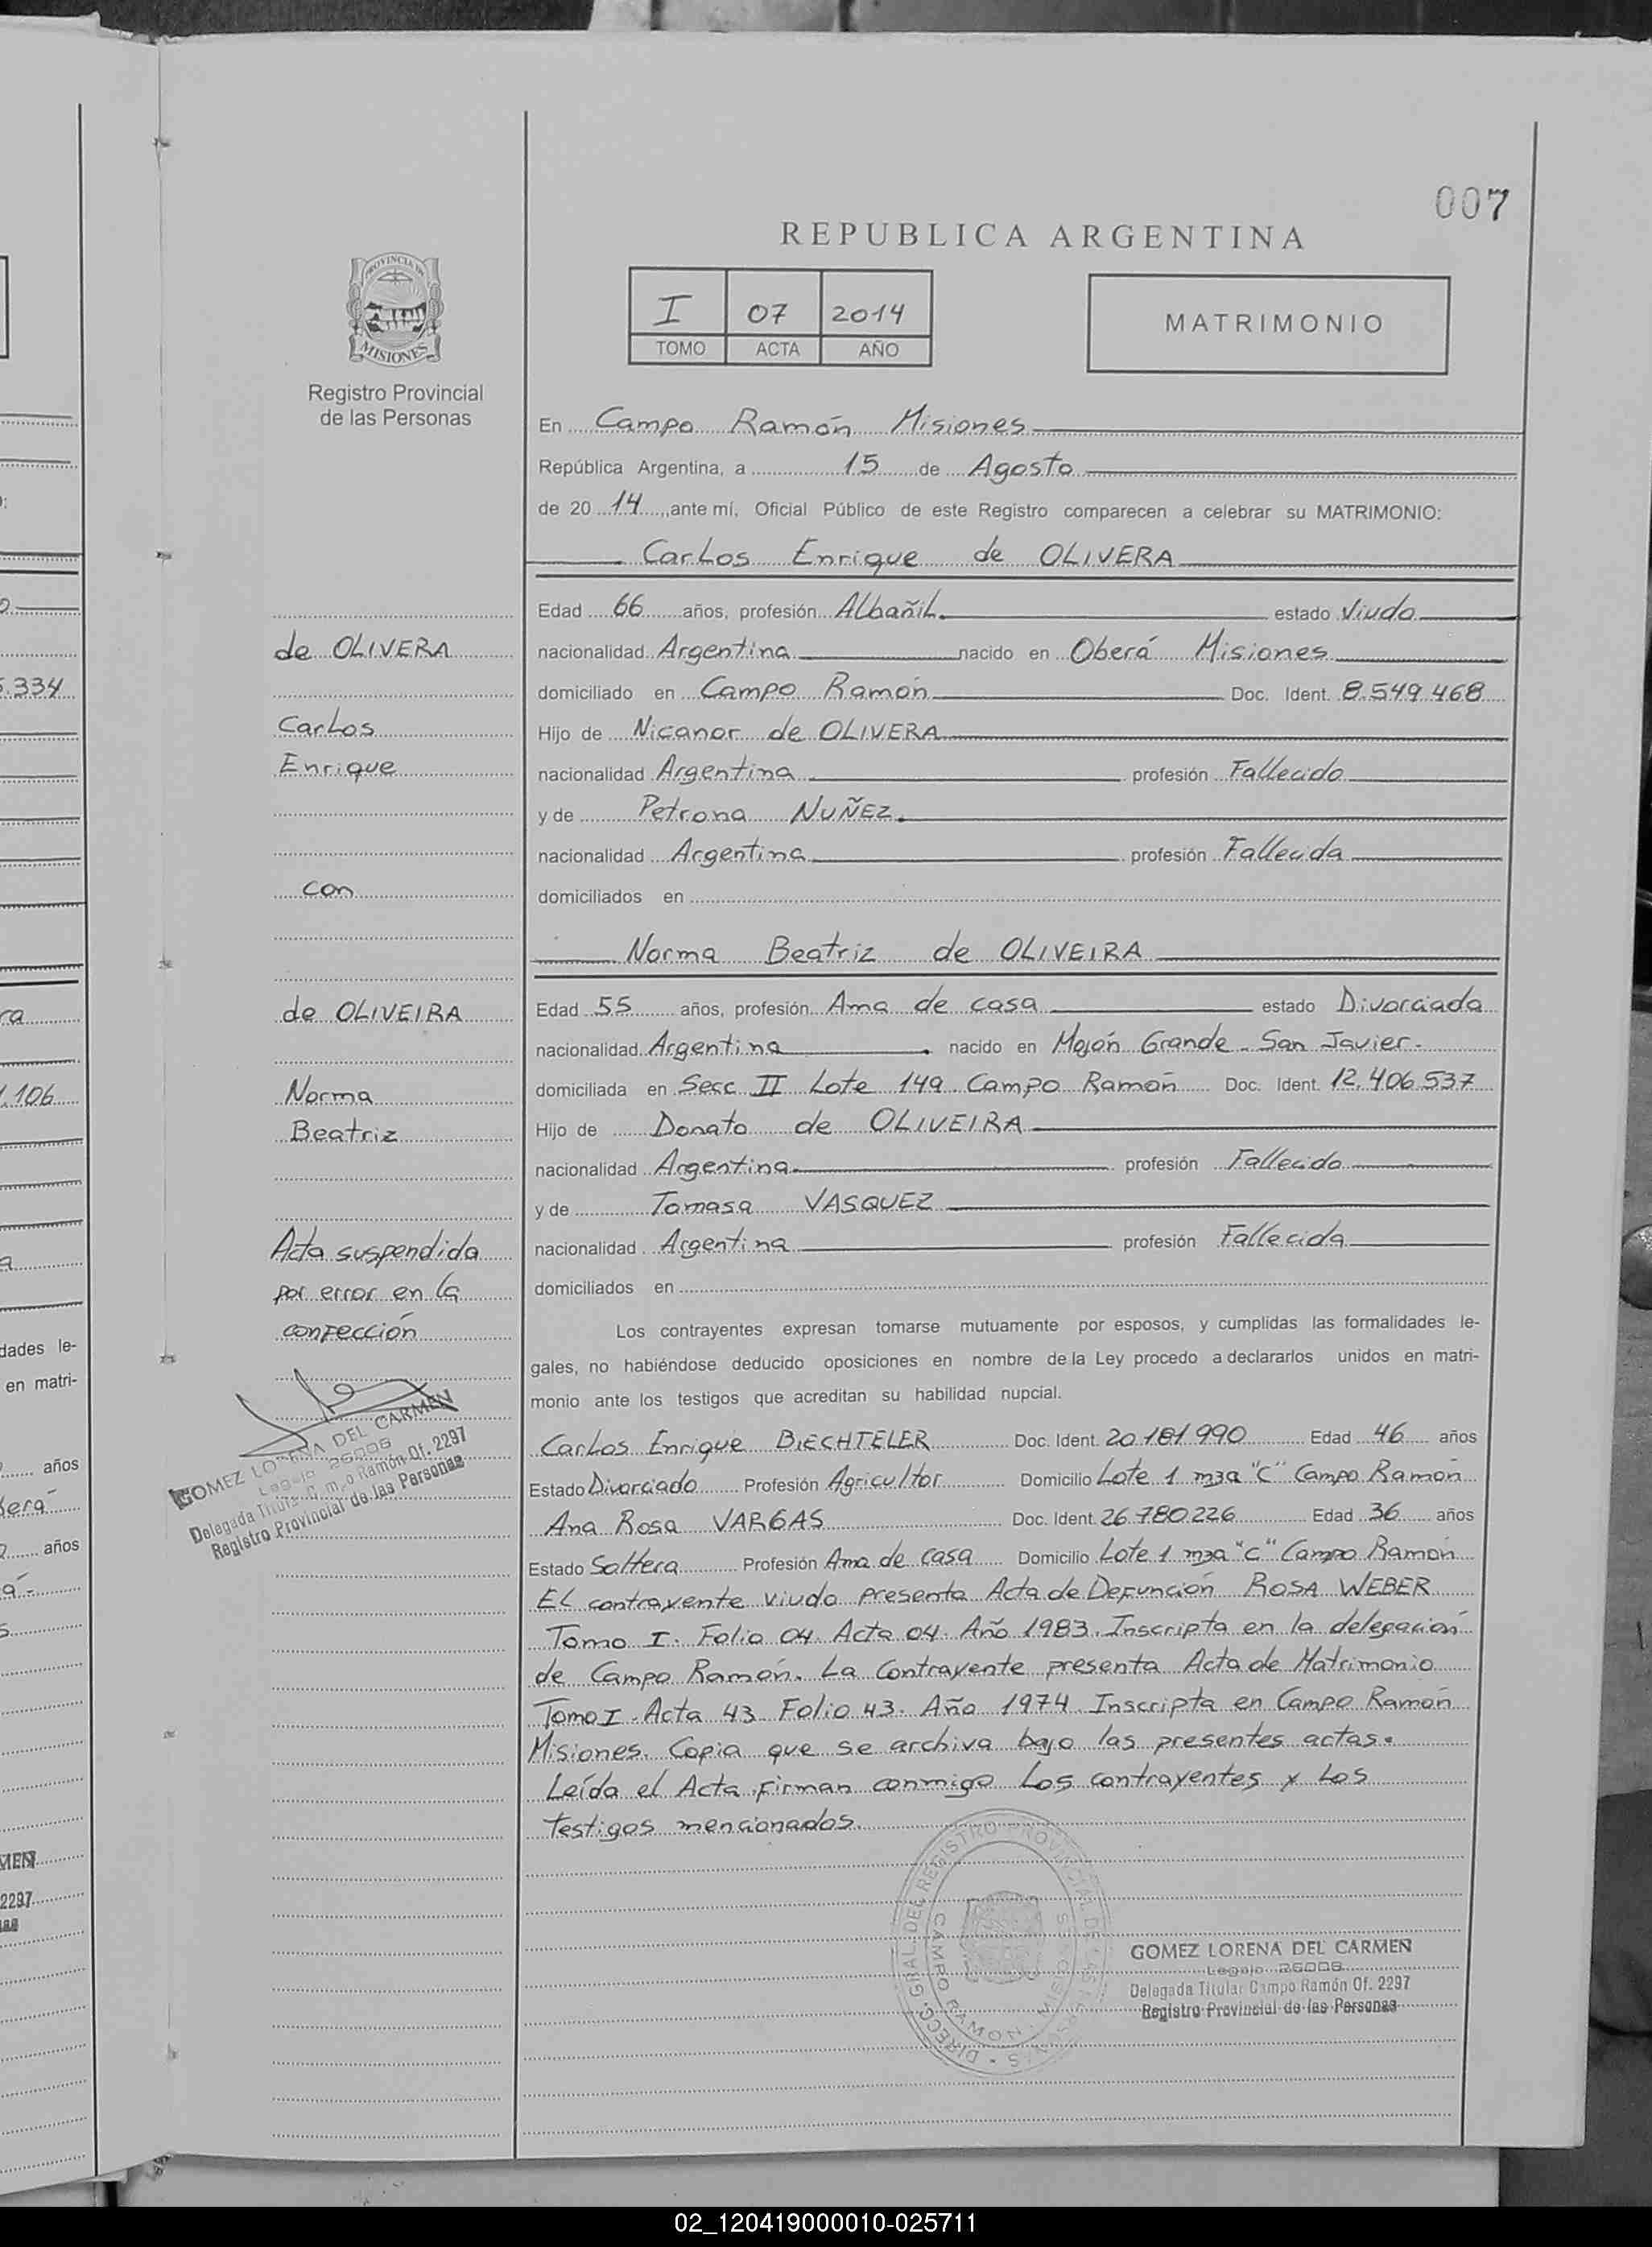 007
REPUBLICA ARGENTINA
PROVINCIA DE
MISIONES
Registro Provincial
de las Personas
I 07 2014
TOMO ACTA AÑO
MATRIMONIO
En Campo Ramón Misiones
República Argentina, a 15 de Agosto
de 20 14, ante mí, Oficial Público de este Registro comparecen a celebrar su MATRIMONIO:
Carlos Enrique de OLIVERA
Edad 66 años, profesión Albañil. estado Viudo
nacionalidad Argentina nacido en Oberá Misiones
domiciliado en Campo Ramón Doc. Ident. 8.549.468
Hijo de Nicanor de OLIVERA
nacionalidad Argentina profesión Fallecido
y de Petrona NUÑEZ.
nacionalidad Argentina profesión Fallecida
domiciliados en
Norma Beatriz de OLIVEIRA
Edad 55 años, profesión Ama de casa estado Divorciada
nacionalidad Argentina nacido en Mojón Grande - San Javier.
domiciliada en Secc II Lote 149 Campo Ramón Doc. Ident. 12.406.537
Hijo de Donato de OLIVEIRA
nacionalidad Argentina profesión Fallecido
y de Tomasa VASQUEZ
nacionalidad Argentina profesión Fallecida
domiciliados en
Los contrayentes expresan tomarse mutuamente por esposos, y cumplidas las formalidades le-
gales, no habiéndose deducido oposiciones en nombre de la Ley procedo a declararlos unidos en matri-
monio ante los testigos que acreditan su habilidad nupcial.
Carlos Enrique BIECHTELER Doc. Ident. 20.181.990 Edad 46 años
Estado Divorciado Profesión Agricultor Domicilio Lote 1 mza "C" Campo Ramón
Ana Rosa VARGAS Doc. Ident. 26.780.226 Edad 36 años
Estado Soltera Profesión Ama de casa Domicilio Lote 1 mza "C" Campo Ramón
El contrayente viudo presenta Acta de Defunción ROSA WEBER
Tomo I. Folio 04. Acta 04. Año 1983. Inscripta en la delegación
de Campo Ramón. La Contrayente presenta Acta de Matrimonio
Tomo I. Acta 43 Folio 43. Año 1974. Inscripta en Campo Ramón
Misiones. Copia que se archiva bajo las presentes actas.
Leída el Acta firman conmigo Los contrayentes y Los
testigos mencionados.
GOMEZ LORENA DEL CARMEN
Legajo 26006
Delegada Titular Campo Ramón Of. 2297
Registro Provincial de las Personas
de OLIVERA
Carlos
Enrique
con
de OLIVEIRA
Norma
Beatriz
Acta suspendida
por error en la
confección
GOMEZ LORENA DEL CARMEN
Legajo 26006
Delegada Titular Campo Ramón Of. 2297
Registro Provincial de las Personas
334
106
dades le-
en matri-
años
años
2297
02_120419000010-025711